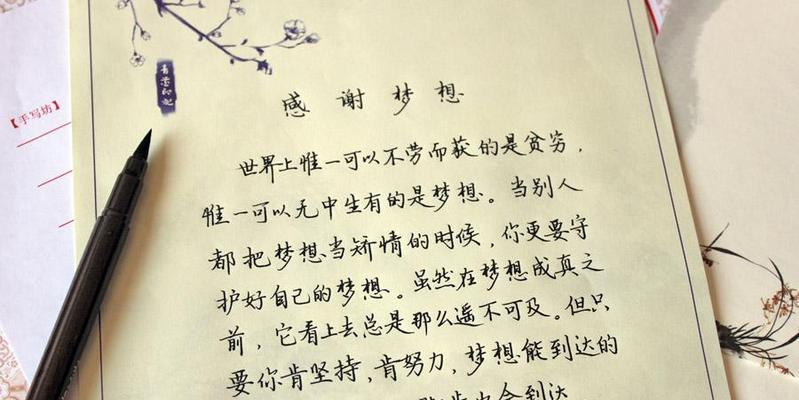 【手写坊】
感谢梦想
世界上惟一可以不劳而获的是贫穷，
惟一可以无中生有的是梦想。当别人
都把梦想当矫情的时候，你更要守
护好自己的梦想。虽然在梦想成真之
前，它看上去总是那么遥不可及。但只
要你肯坚持，肯努力，梦想能到达的
也会到达